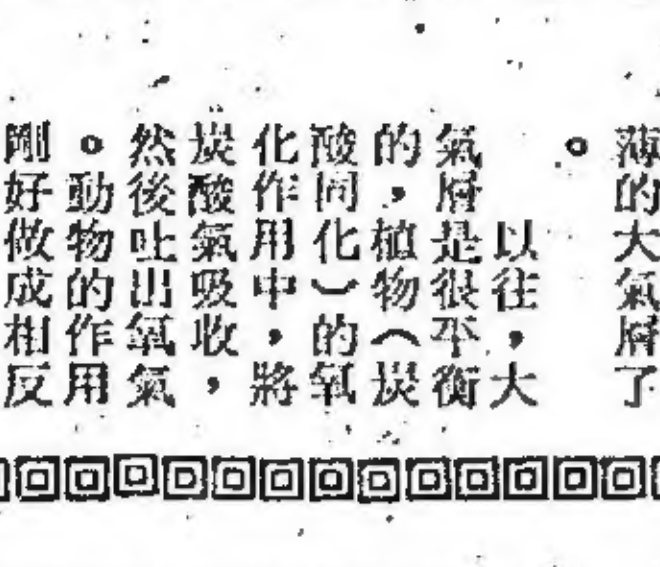 薄的大氣層了
。
以往，大
氣層是很平衡
的，植物（炭
酸同化）的氧
化作用中，將
炭酸氣吸收，
然後吐出氧氣
。動物的作用
剛好做成相反